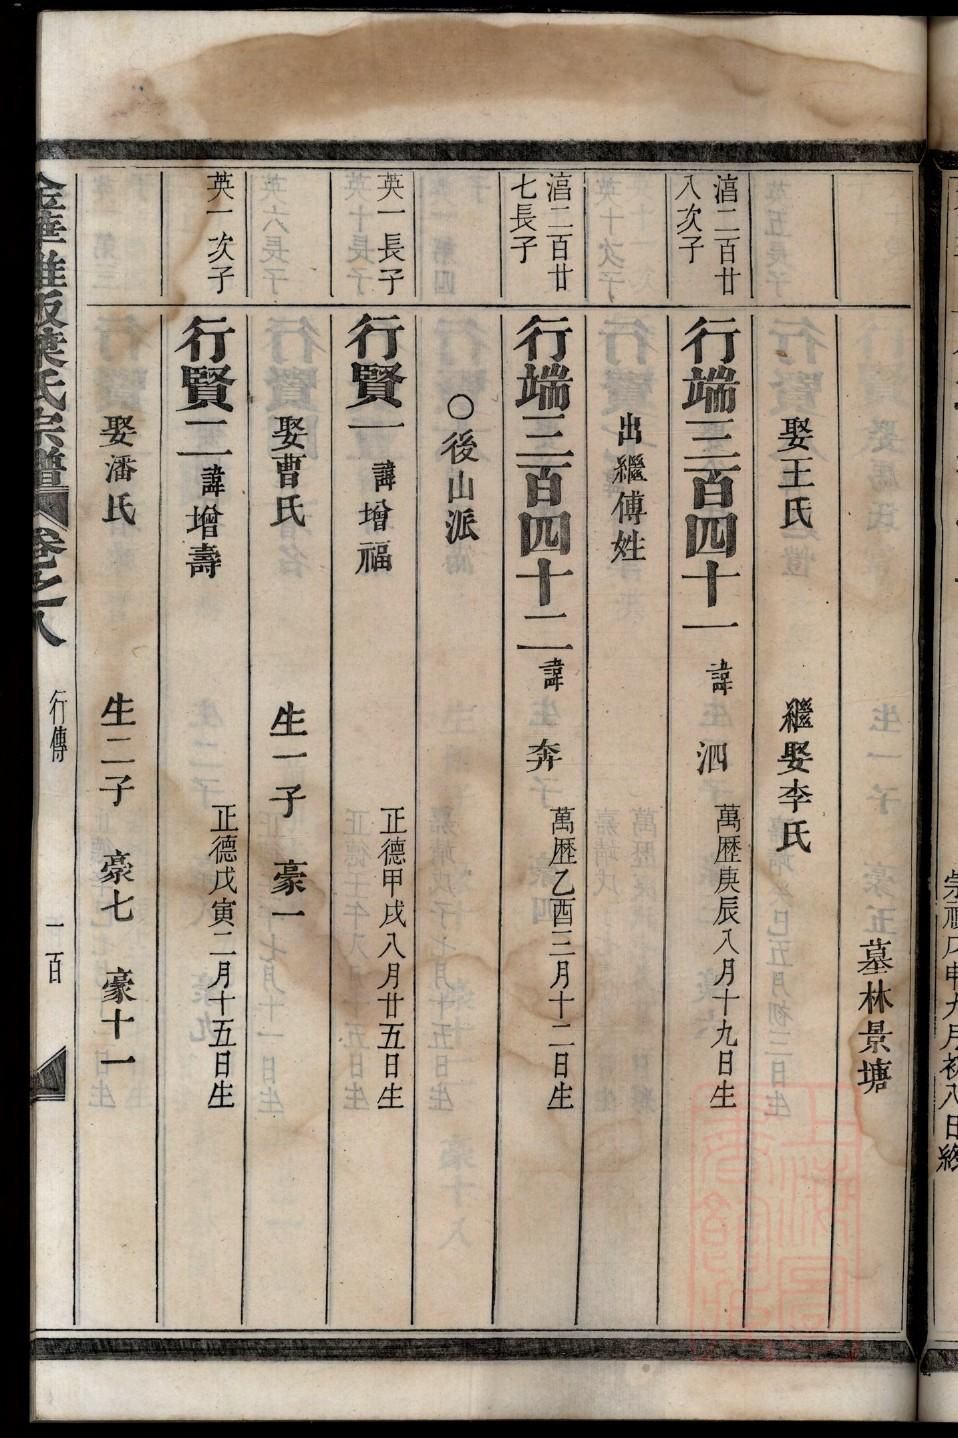 墓林景塘
娶王氏 繼娶李氏
湻二百廿
入次子
行端三百四十一 諱泗 萬歷庚辰八月十九日生
出繼傅姓
湻二百廿
七長子
行端三百四十二 諱奔 萬歷乙酉三月十二日生
○後山派
英一長子
行賢一 諱增福 正德甲戌八月廿五日生
娶曹氏 生一子 豪一
英一次子
行賢二 諱增壽 正德戊寅二月十五日生
娶潘氏 生二子 豪七 豪十一
氏宗譜 卷之八 行傳 一百